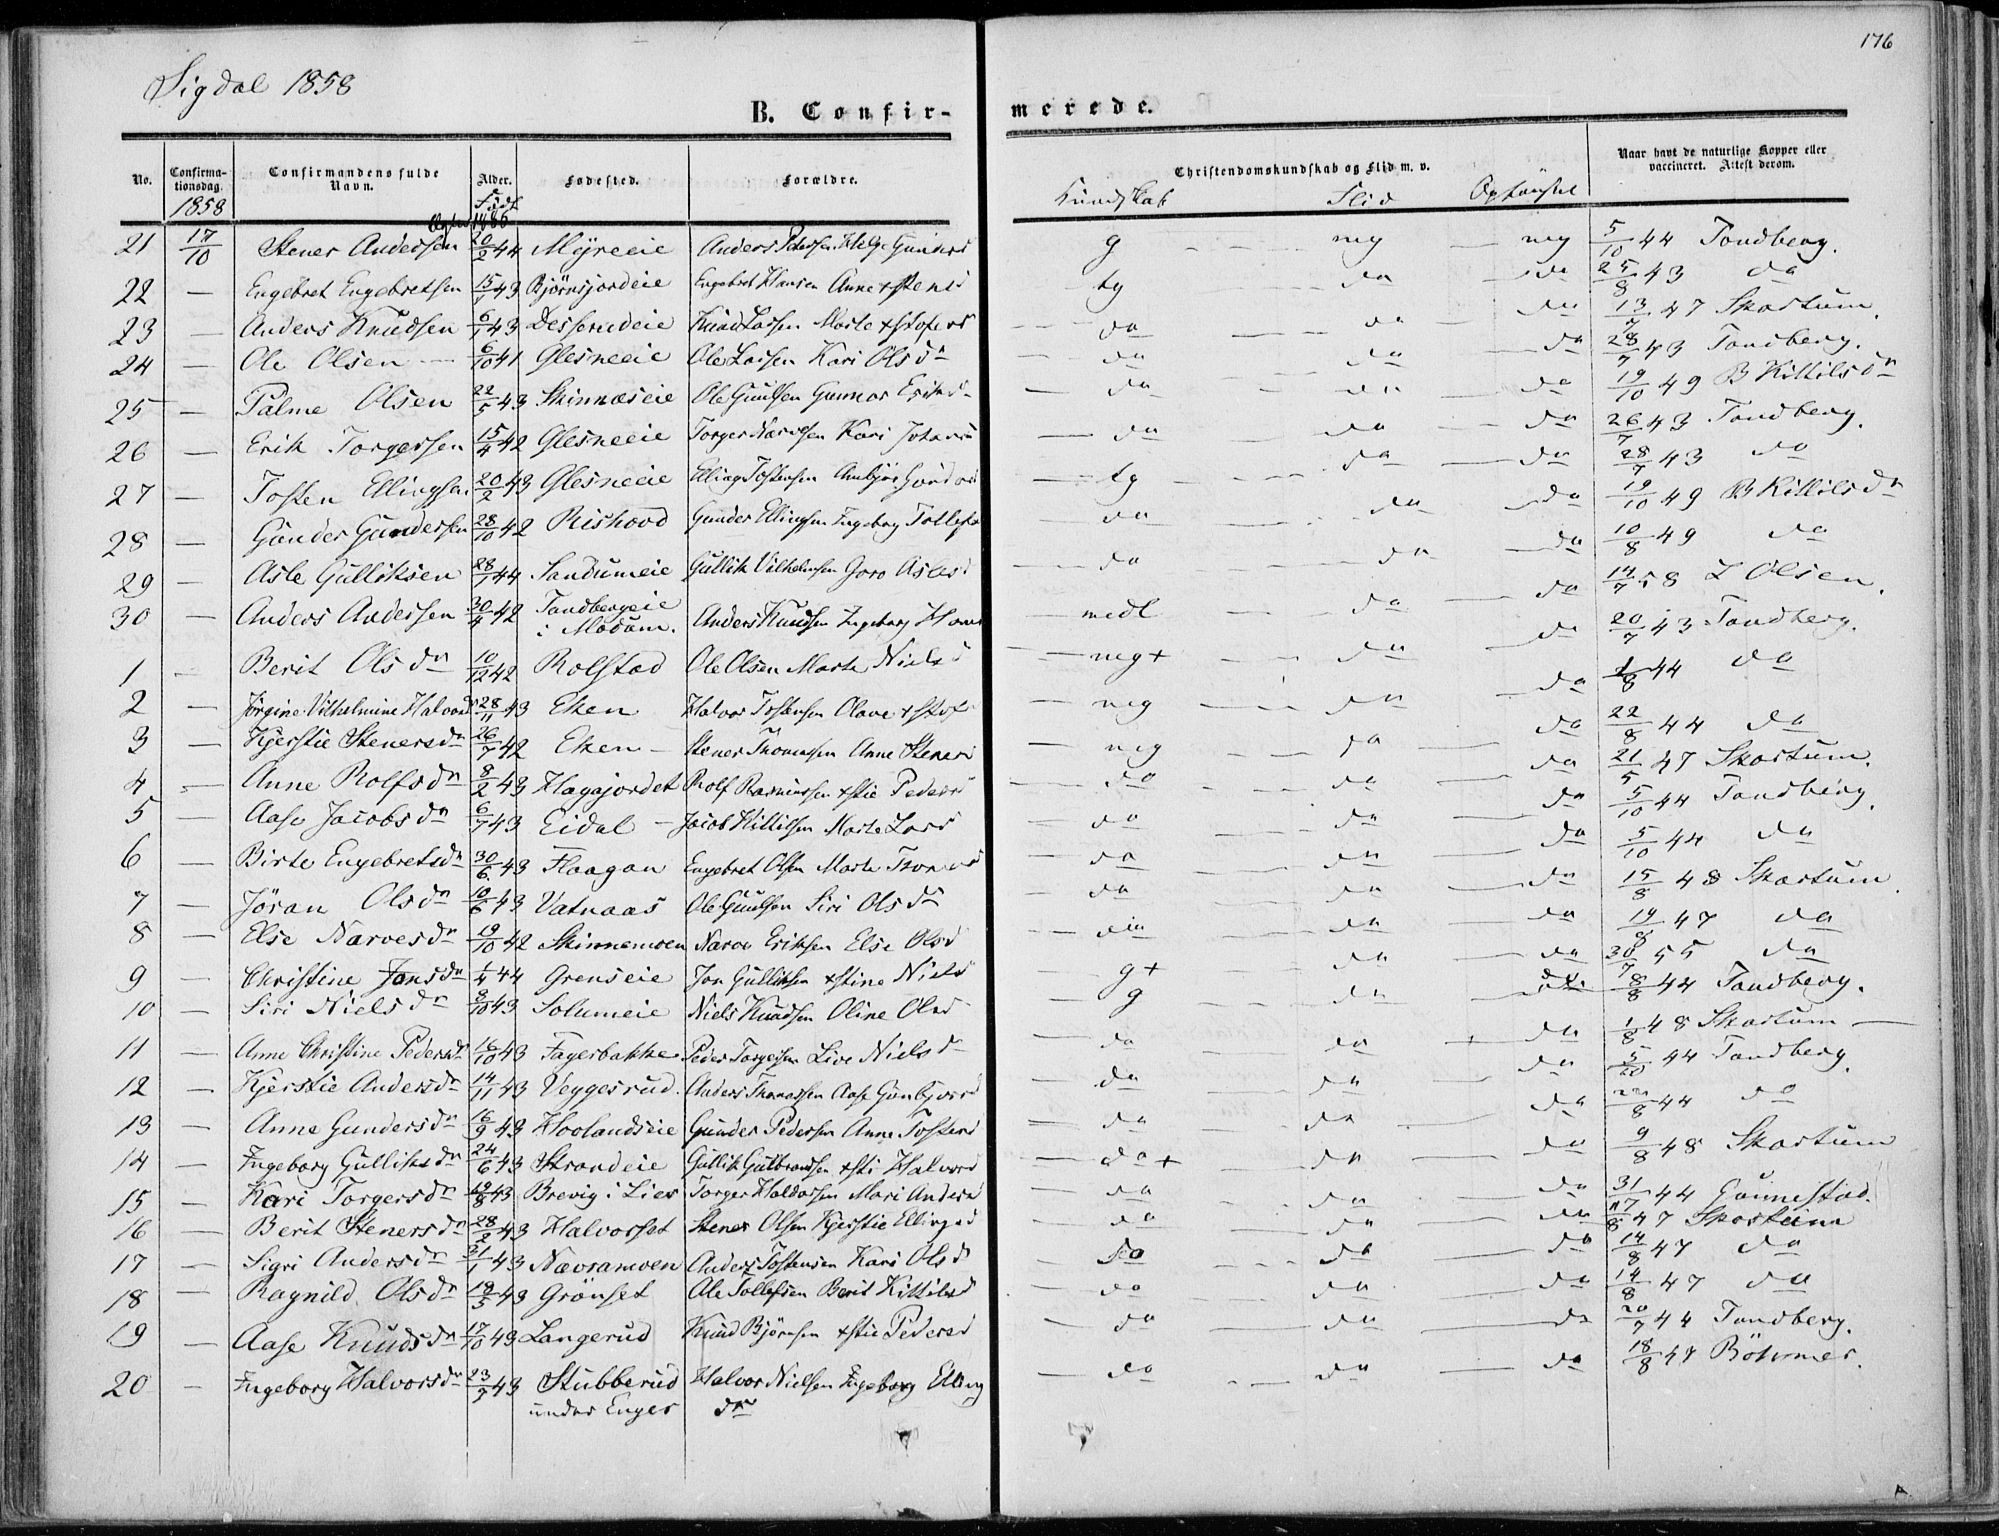 176
Sigdal 1858
B. Confirmerede.
No. Confirmationsdag. Confirmandens fulde Navn. Alder. Fødested. Forældre. Christendomskundskab og Flid m. v. Naar havt de naturlige Kopper eller vaccineret. Attest derom.
1858 Født Kundskab Flid Opførsel
21 17/10 Stener Andersen 20/2 44 Myreeie Anders Pedersen Helge Gunnersd g mg mg 5/10 44 Tandberg.
22 — Engebret Engebretsen 15/1 43 Bjørnsjordeie Engebret Hansen Anne xstensd tg da da 25/8 43 da
23 — Anders Knudsen 6/1 43 Desserudeie Knud Larsen Marte xstofersd da da da 13/7 47 Skartum.
24 — Ole Olsen 6/10 41 Glesneeie Ole Larsen Kari Olsdr da da da 28/7 43 Tandberg.
25 — Palme Olsen 22/5 43 Skinnæseie Ole Gulsen Gunnor Eriksd da da da 19/10 49 B Kittilsdr
26 — Erik Torgersen 15/4 42 Glesneeie Torger Narvesen Kari da da da 26/7 43 Tandberg.
27 — Tosten Ellingsen 20/2 43 Glesneeie Elling Tostensen Anbjør tg da da 28/7 43 da
28 — Gunder Gundersen 28/10 42 Rishovd Gunder Ellingsen Ingeborg Tollefs da da da 19/10 49 B Kittilsdr
29 — Asle Gulliksen 28/1 44 Sandumeie Gullik Vilhelmsen Goro Aslesd da da da 10/8 49 da
30 — Anders Andersen 30/4 42 Tandbergeie i Modum. Anders Knudsen Ingeborg Hans medl da da 14/7 58 L Olsen.
1 — Berit Olsdr 10/12 42 Rolstad Ole Olsen Marte Nielsd mg+ da da 20/7 43 Tandberg.
2 — Jørgine Vilhelmine Halvorsdr 28/11 43 Eken Halvor Tostensen Olave xstofs mg da da 1/8 44 da
3 — Kjerstie Stenersdr 26/7 42 Eken Stener Thomasen Anne Stenersd mg da da 22/8 44 da
4 — Anne Rolfsdr 8/2 43 Hagajordet Rolf Rasmussen xstie Pedersd da da da 21/5 47 Skartum.
5 — Aase Jacobsdr 6/7 43 Eidal Jacob Kittilsen Marte Larsd da da da 5/10 44 Tandberg.
6 — Birte Engebretsdr 30/6 43 Flaagan Engebret Olsen Marte da da da 5/10 44 da
7 — Jøran Olsdr 10/6 43 Vatnaas Ole Gulsen Siri Olsdr da da da 15/8 48 Skartum.
8 — Else Narvesdr 19/10 42 Skinnemoen Narve Eriksen Else Olsd da da da 19/8 47 da
9 — Christine Jonsdr 1/4 44 Grenseie Jon Gulliksen xstine Nielsd g+ da da 30/7 55 da
10 — Siri Nielsdr 8/10 43 Solumeie Niels Knudsen Oline Olsd g da 8/8 44 Tandberg.
11 — Anne Christine Pedersdr 16/10 43 Fagerbakke Peder Torgersen Live Nielsdr da da da 1/8 48 Skartum
12 — Kjerstie Andersdr 14/11 43 Veggesrud. Anders Thomassen Aase Gunbjørnsd da da da 5/10 44 Tandberg.
13 — Anne Gundersdr 16/9 43 Hoolandseie Gunder Pedersen Anne Tostensd da da da 22/8 44 da
14 — Ingeborg Gulliksdr 24/6 43 Strandeie Gullik Gulbrandsen xsti Halvorsd da+ da da 9/8 48 Skartum
15 — Kari Torgersdr 19/8 43 Brevig i Lier Torger Haldorsen Mari Andersd da da da 31/7 44 Gunnestad.
16 — Berit Stenersdr 28/2 43 Halvorset Stener Olsen Kjerstie Ellingsd da da da 17/8 47 Skartum
17 — Sigri Andersdr 31/1 43 Nævramoen Anders Tostensen Kari Olsd da da da 14/8 47 da
18 — Ragnild Olsdr 19/5 43 Grønset Ole Tollefsen Berit Kittilsd da da da 14/8 47 da
19 — Aase Knudsdr 17/10 43 Langerud Knud Bjørnsen xstie Pedersd da da da 20/7 44 Tandberg.
20 — Ingeborg Halvorsdr 23/7 43 Stubberud under Enger Halvor Nielsen Ingeborg Ellingsdr da da da 18/8 47 Bøhmer.